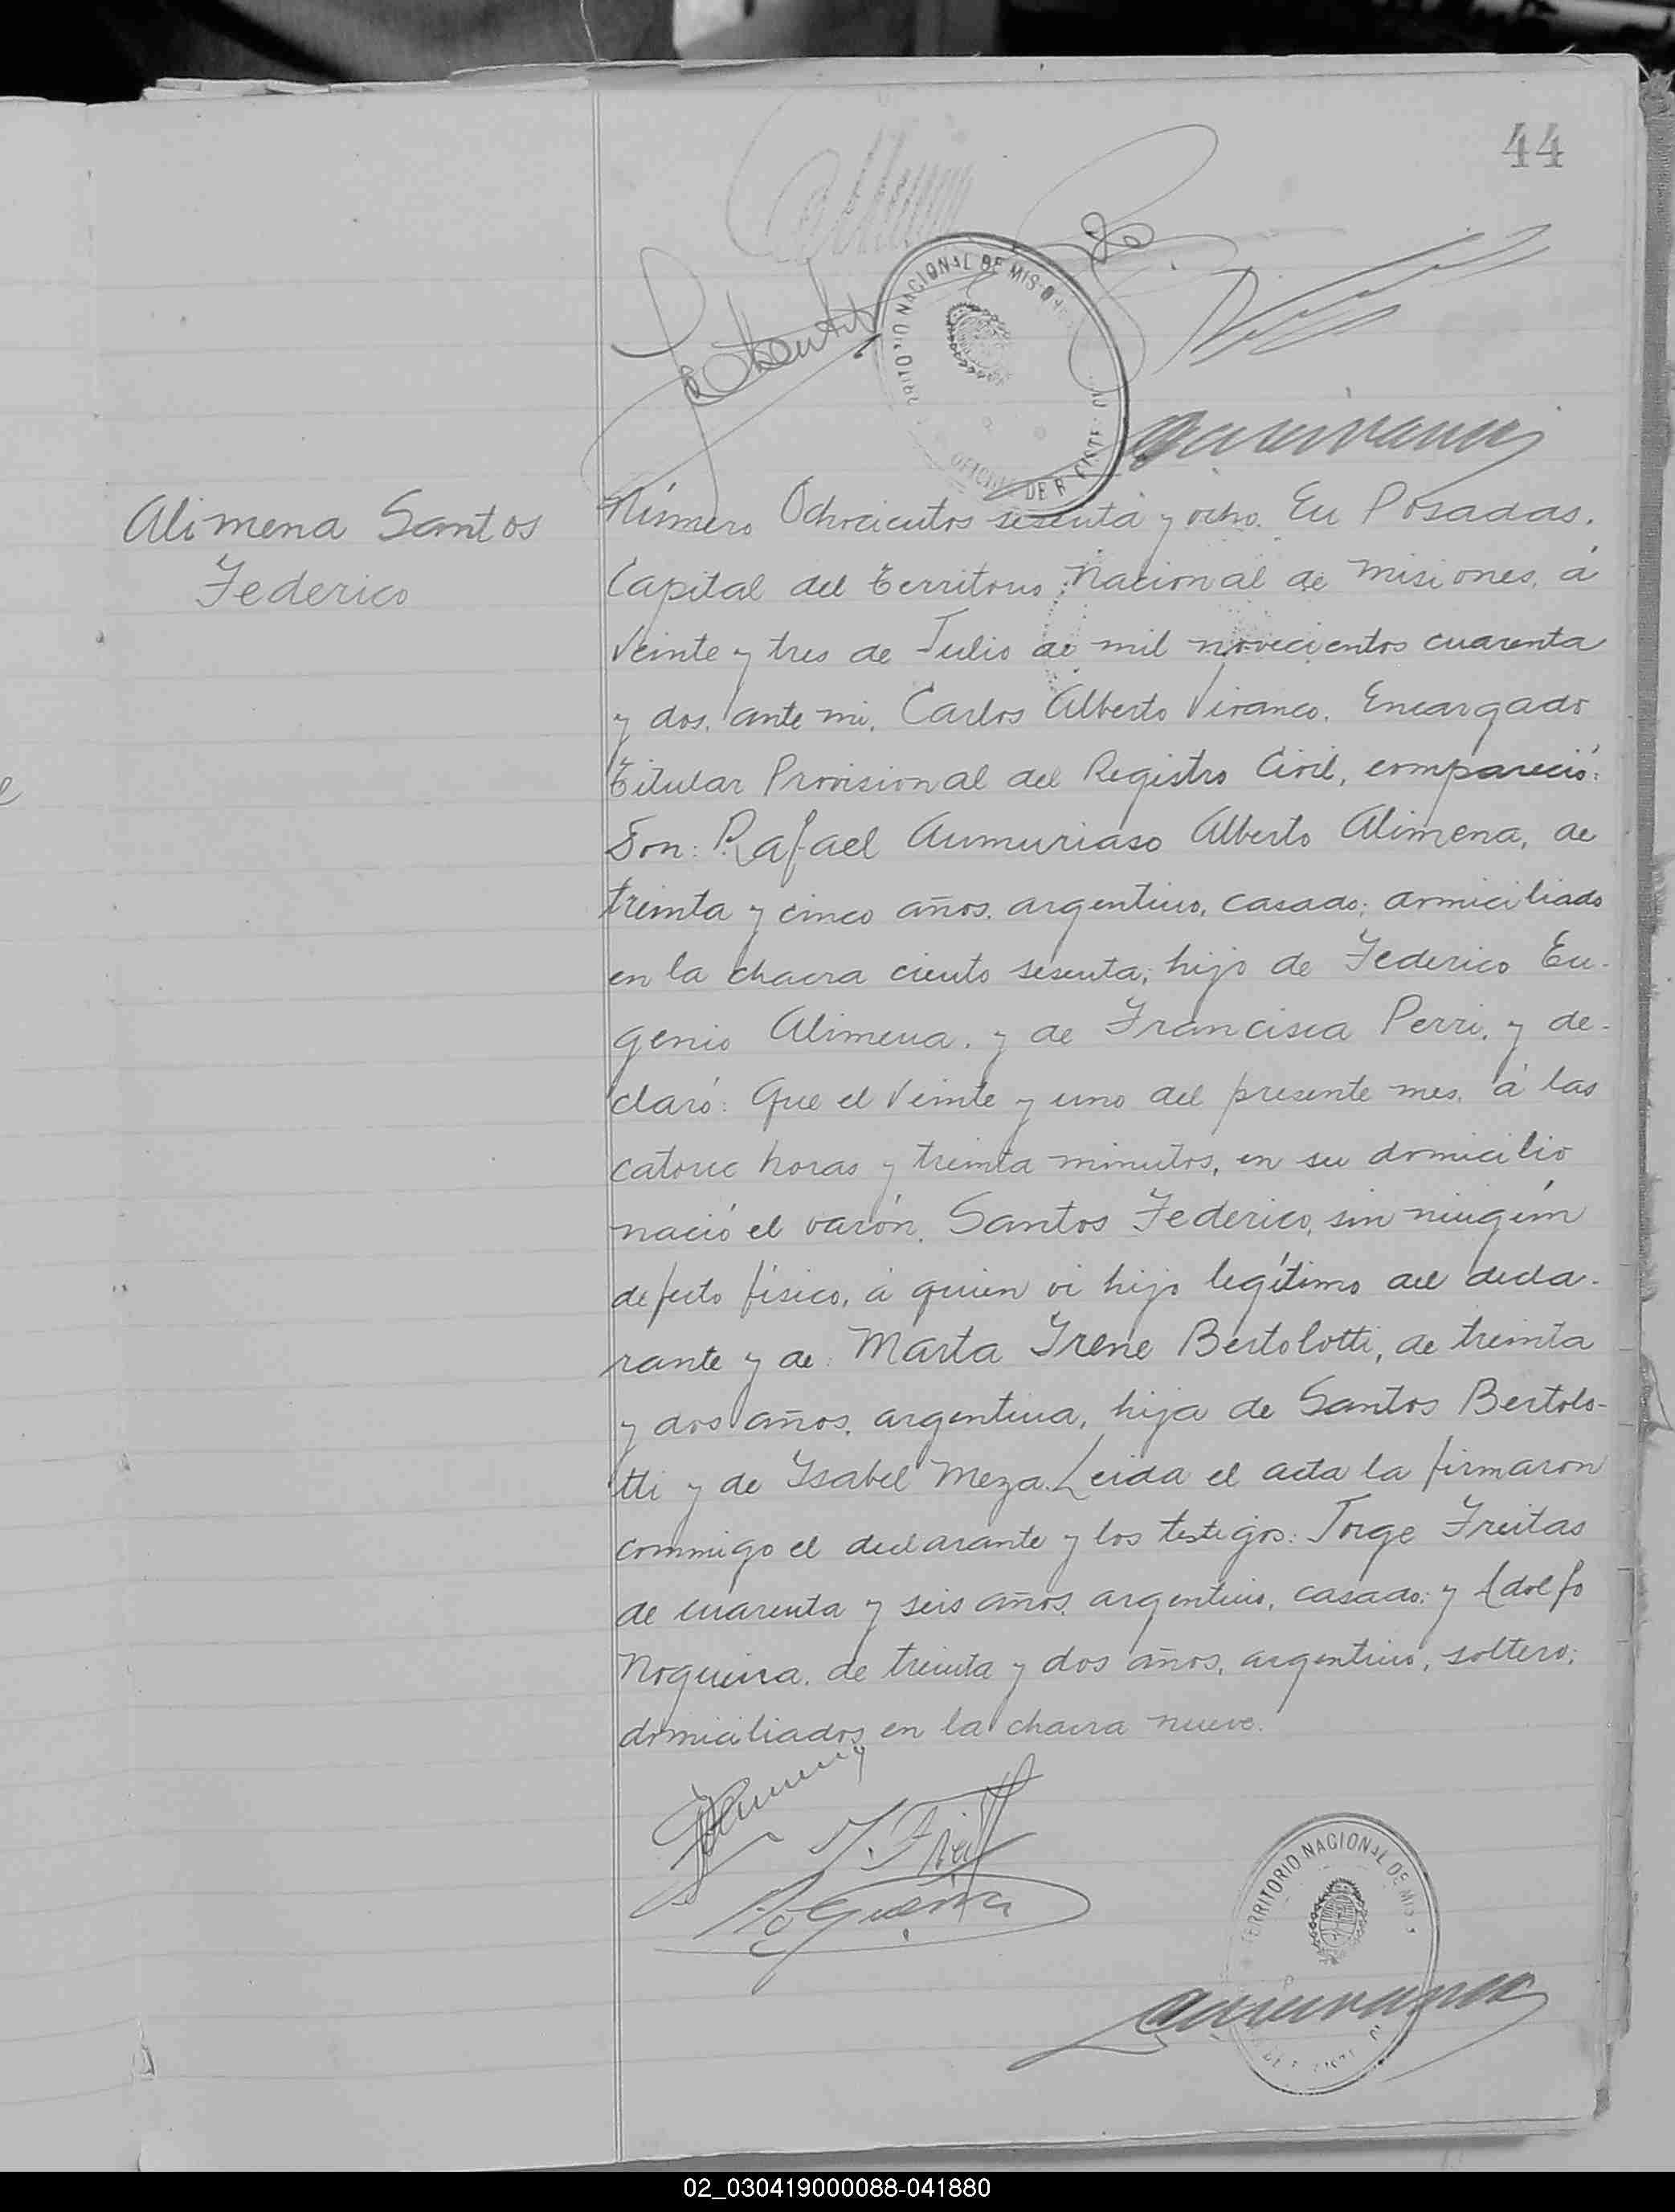 44
TERRITORIO NACIONAL DE MISIONES
OFICINA DE R
Alimena Santos
Federico
Número Ochocientos sesenta y ocho. En Posadas,
Capital del Territorio Nacional de Misiones, á
veinte y tres de Julio de mil novecientos cuarenta
y dos, ante mi, Carlos Alberto Vivanco, Encargado
Titular Provisional del Registro Civil, compareció:
Don: Rafael Aumuriaso Alberto Alimena, de
treinta y cinco años, argentino, casado; domiciliado
en la chacra ciento sesenta; hijo de Federico Eu-
genio Alimena, y de Francisca Perri, y de-
claró: Que el veinte y uno del presente mes, á las
catorce horas y treinta minutos, en su domicilio
nació el varón, Santos Federico, sin ningún
defecto físico, á quien ví hijo legítimo del decla-
rante y de: Marta Irene Bertolotti, de treinta
y dos años, argentina, hija de Santos Bertolo-
tti y de Isabel Meza. Leida el acta la firmaron
conmigo el declarante y los testigos: Jorge Freitas
de cuarenta y seis años, argentino, casado; y Adolfo
Nogueira, de treinta y dos años, argentino, soltero;
domiciliados en la chacra nueve.
J. Freit
Nogueira
TERRITORIO NACIONAL DE MIS
02_030419000088-041880